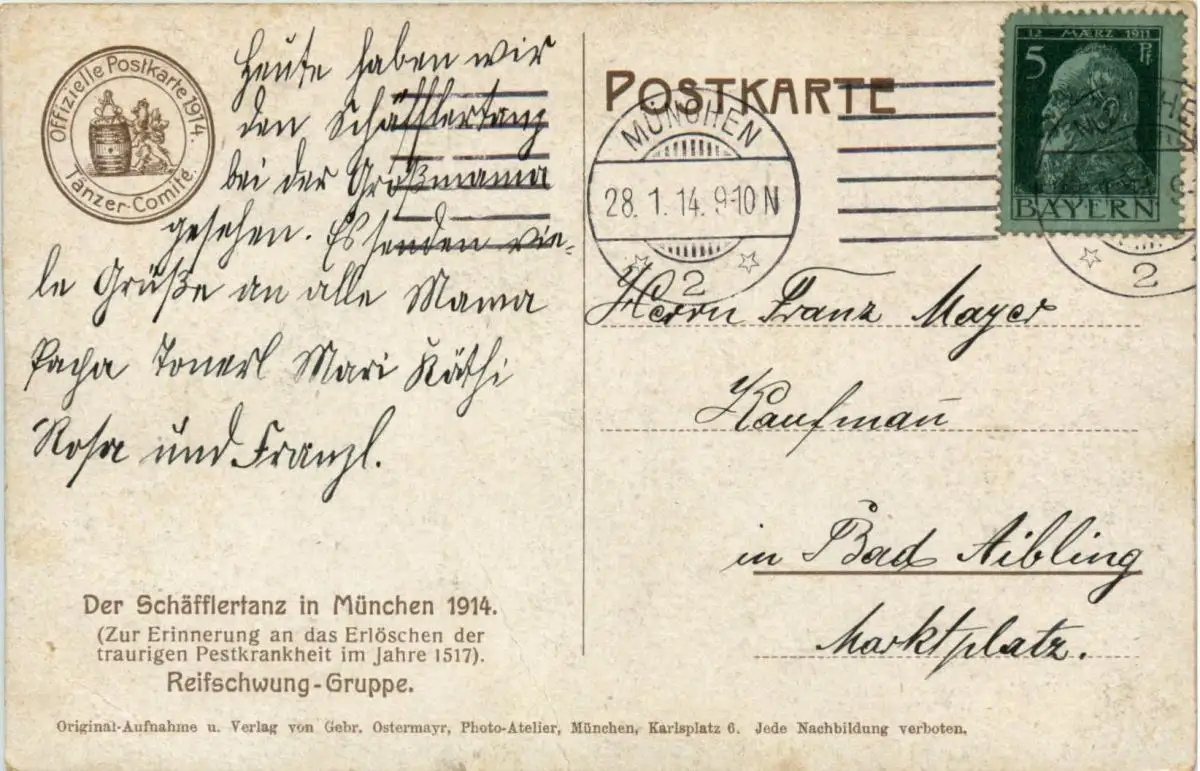 Offizielle Postkarte 1914.
Tänzer-Comité.
Heute haben wir
den Schäfflertanz
bei der Großmama
gesehen. Es senden vie-
le Grüße an alle Mama
Papa Tonerl Mari Käthi
Rosa und Franzl.
Der Schäfflertanz in München 1914.
(Zur Erinnerung an das Erlöschen der
traurigen Pestkrankheit im Jahre 1517).
Reifschwung-Gruppe.
Original-Aufnahme u. Verlag von Gebr. Ostermayr, Photo-Atelier, München, Karlsplatz 6. Jede Nachbildung verboten.
POSTKARTE
MÜNCHEN
28. 1. 14. 9-10 N
2
12 MÆRZ 1911
5 Pf
BAYERN
2
Herrn Franz Mayer
Kaufman̄
in Bad Aibling
Marktplatz.